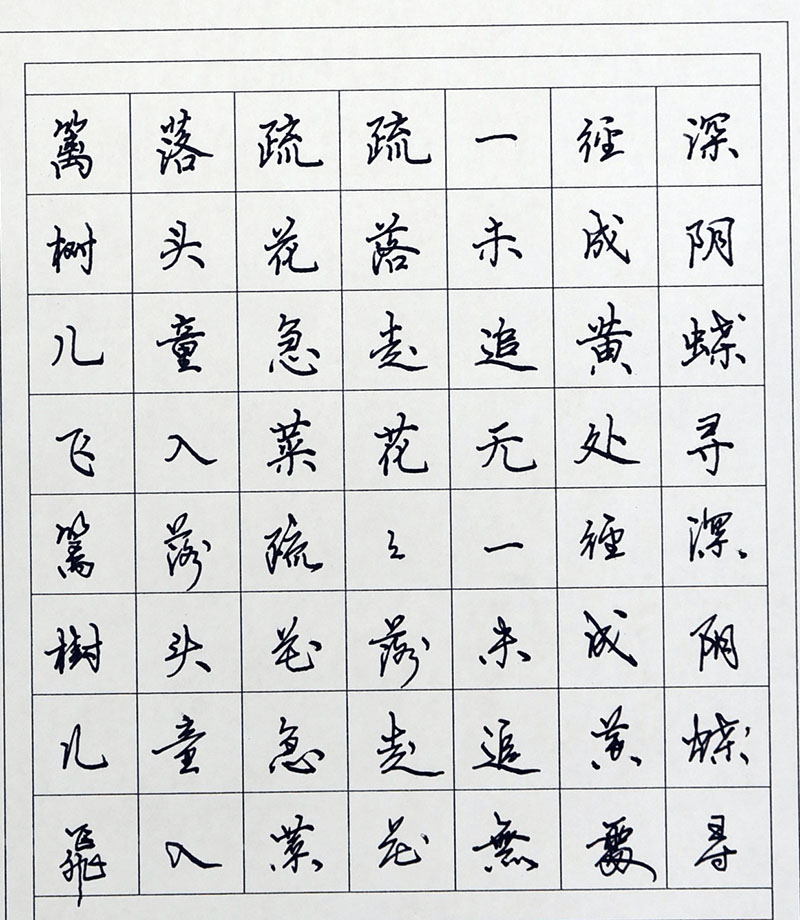 篱落疏疏一径深
树头花落未成阴
儿童急走追黄蝶
飞入菜花无处寻
篱落疏〻一径深
樹头花落未成阴
儿童急走追黄蝶
飛入菜花無處寻